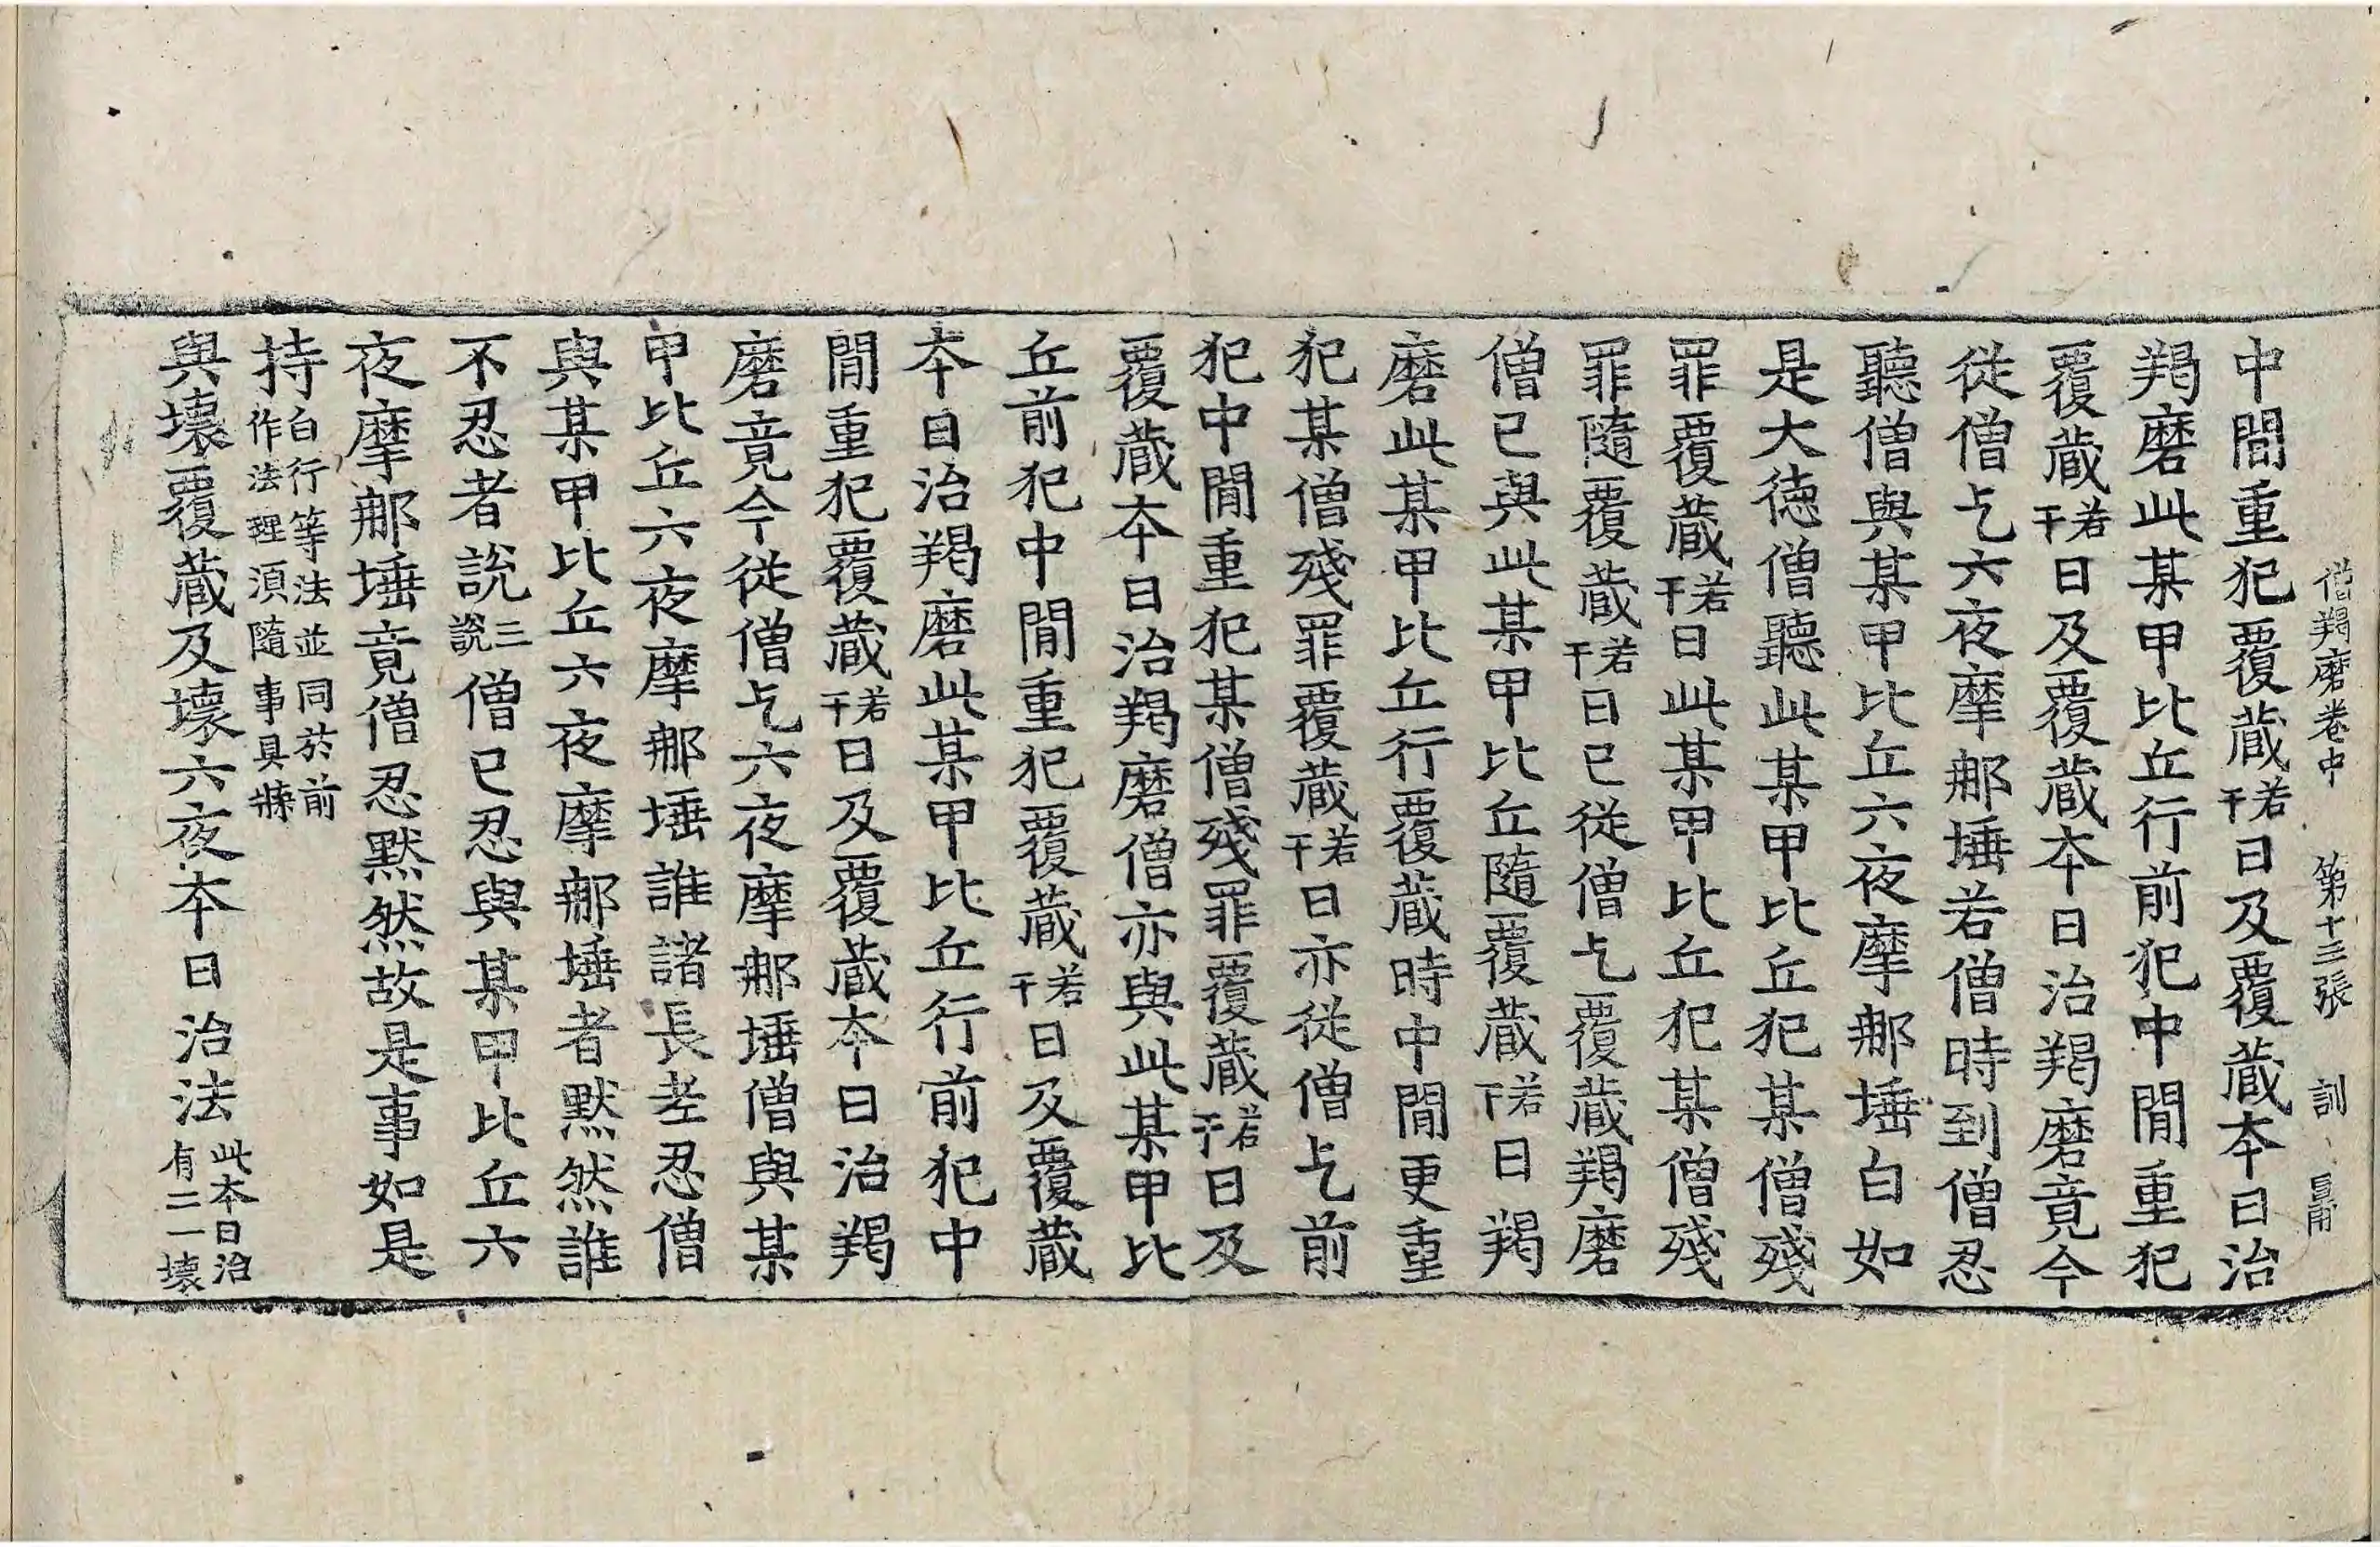 僧羯磨卷中 第十三張 訓
中間重犯覆蔵若干日及覆蔵本日治
羯磨此某甲比丘行前犯中間重犯
覆蔵若干日及覆蔵本日治羯磨竟今
従僧乞六夜摩那埵若僧時到僧忍
聽僧與某甲比丘六夜摩那埵白如
是大徳僧聽此某甲比丘犯某僧殘
罪覆蔵若干日此某甲比丘犯某僧殘
罪隨覆蔵若干日已從僧乞覆蔵羯磨
僧已與此某甲比丘隨覆蔵若干日羯
磨此某甲比丘行覆蔵時中間更重
犯某僧殘罪覆蔵若干日亦從僧乞前
犯中間重犯某僧殘罪覆蔵若干日及
覆蔵本日治羯磨僧亦與此某甲比
丘前犯中間重犯覆蔵若干日及覆蔵
本日治羯磨此某甲比丘行前犯中
間重犯覆蔵若干日及覆蔵本日治羯
磨竟今從僧乞六夜摩那埵僧與某
甲比丘六夜摩那埵誰諸長老忍僧
與某甲比丘六夜摩那埵者默然誰
不忍者說三說僧已忍與某甲比丘六
夜摩那埵竟僧忍默然故是事如是
持白行等法並同於前作法理須隨事具牒
與壞覆蔵及壞六夜本日治法此本日治有二一壞